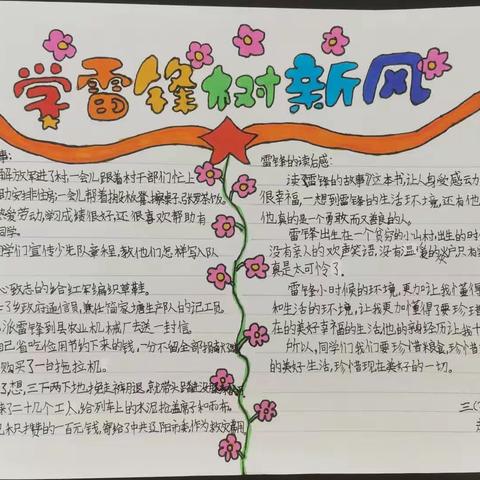 学雷锋树新风
事:
解放军进了村一会儿跟着村干部们忙上
助安排住房一会儿帮着搬板凳、擦桌子、张罗茶饭
热爱劳动,学习成绩很好,还很喜欢帮助有
同学。
同学们宣传少先队章程,教他们怎样写入队
心致志的给红军编织草鞋。
了乡政府通信员,兼任简家塘生产队的记工员
派雷锋到县农业机械厂去送一封信
自己省吃俭用节约下来的钱,一分不留全部捐献
购买了一台拖拉机。
了想,三下两下地
来了二十几个工人,给列车上的水泥拉盖席子和雨布
己积攒的一百元钱,寄给了中共辽阳市委作为救灾
雷锋的读后感:
读《雷锋的故事》这本书,让人身感动
很幸福,一想到雷锋的生活环境,还有他
他真的是一个勇敢而又善良的人。
雷锋出生在一个贫穷的小山村,出生的时
没有亲人的欢声笑语,没有温暖的 只有
真是太可怜了.
雷锋小时候的环境,更加让我懂得
和生活的环境,让我更加懂得要珍
在的美好幸福的生活,他的的经历让我
所以,同学们我们要珍惜粮食,珍惜
的美好生活,珍惜现在美好的一切。
三(